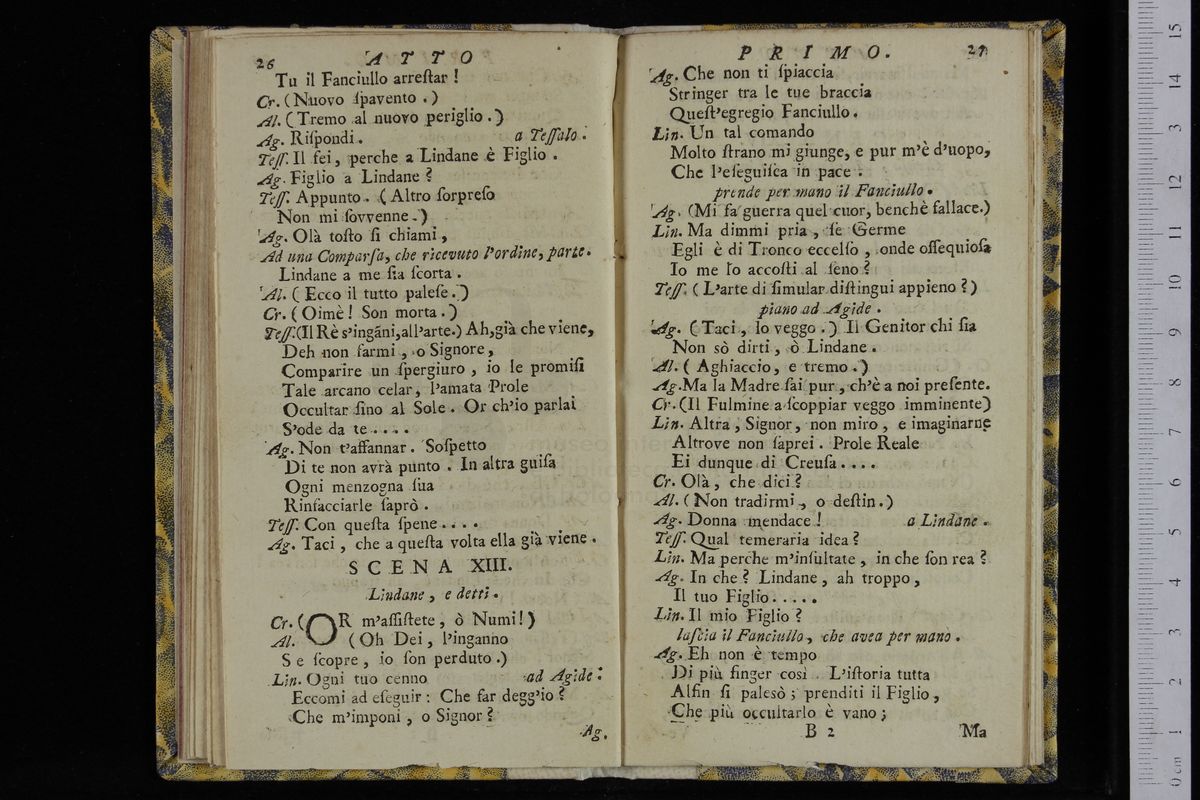 26 ATTO
Tu il Fanciullo arreſtar !
Cr. (Nuovo ſpavento .)
Al. (Tremo al nuovo periglio .)
Ag. Riſpondi. a Teſſalo .
Teſſ. Il ſei, perche a Lindane è Figlio .
Ag. Figlio a Lindane ?
Teſſ. Appunto. (Altro ſorpreſo
Non mi ſovvenne.)
Ag. Olà toſto ſi chiami,
Ad una Comparſa, che ricevuto l'ordine, parte.
Lindane a me ſia ſcorta .
Al. ( Ecco il tutto paleſe.)
Cr. (Oimè! Son morta .)
Teſſ. (Il Rè s'ingãni, all'arte.) Ah, già che viene,
Deh non farmi , o Signore,
Comparire un ſpergiuro , io le promiſi
Tale arcano celar, l'amata Prole
Occultar ſino al Sole . Or ch'io parlai
S'ode da te . . . .
Ag. Non t'affannar. Soſpetto
Di te non avrà punto . In altra guiſa
Ogni menzogna ſua
Rinfacciarle ſaprò .
Teſſ. Con queſta ſpene . . . .
Ag. Taci , che a queſta volta ella già viene .
SCENA XIII.
Lindane , e detti .
Cr. ( OR m'aſſiſtete, ò Numi! )
Al. ( Oh Dei , l'inganno
Se ſcopre , io ſon perduto .)
Lin. Ogni tuo cenno ad Agide :
Eccomi ad eſeguir : Che far degg'io ?
Che m'imponi , o Signor ?
Ag.
PRIMO. 27
Ag. Che non ti ſpiaccia
Stringer tra le tue braccia
Queſt'egregio Fanciullo.
Lin. Un tal comando
Molto ſtrano mi giunge, e pur m'è d'uopo,
Che l'eſeguiſca in pace .
prende per mano il Fanciullo .
Ag. (Mi fa guerra quel cuor, benchè fallace.)
Lin. Ma dimmi pria , ſe Germe
Egli è di Tronco eccelſo , onde oſſequioſa
Io me lo accoſti al ſeno ?
Teſſ. ( L'arte di ſimular diſtingui appieno ? )
piano ad Agide .
Ag. ( Taci , lo veggo . ) Il Genitor chi ſia
Non sò dirti , ò Lindane .
Al. ( Aghiaccio, e tremo .)
Ag. Ma la Madre ſai pur , ch'è a noi preſente.
Cr. (Il Fulmine a ſcoppiar veggo imminente)
Lin. Altra , Signor, non miro , e imaginarne
Altrove non ſaprei . Prole Reale
Ei dunque di Creuſa . . . .
Cr. Olà , che dici ?
Al. ( Non tradirmi , o deſtin.)
Ag. Donna mendace ! a Lindane .
Teſſ. Qual temeraria idea ?
Lin. Ma perche m'inſultate , in che ſon rea ?
Ag. In che ? Lindane , ah troppo ,
Il tuo Figlio . . . . .
Lin. Il mio Figlio ?
laſcia il Fanciullo, che avea per mano .
Ag. Eh non è tempo
Di più finger così . L'iſtoria tutta
Alfin ſi palesò ; prenditi il Figlio ,
Che più occultarlo è vano ;
B 2 Ma
0 cm 1 2 3 4 5 6 7 8 9 10 11 12 13 14 15